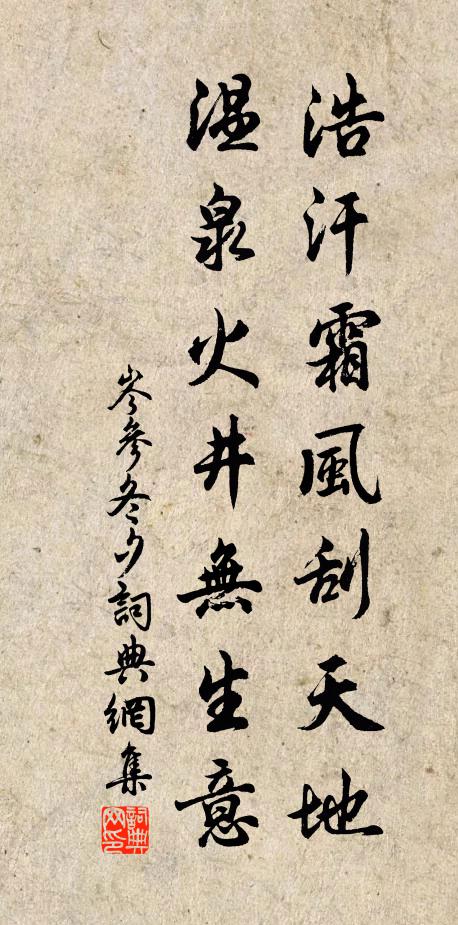 浩汗霜風刮天地
溫泉火井無生意
岑參冬夕詞典網集
詞典網印